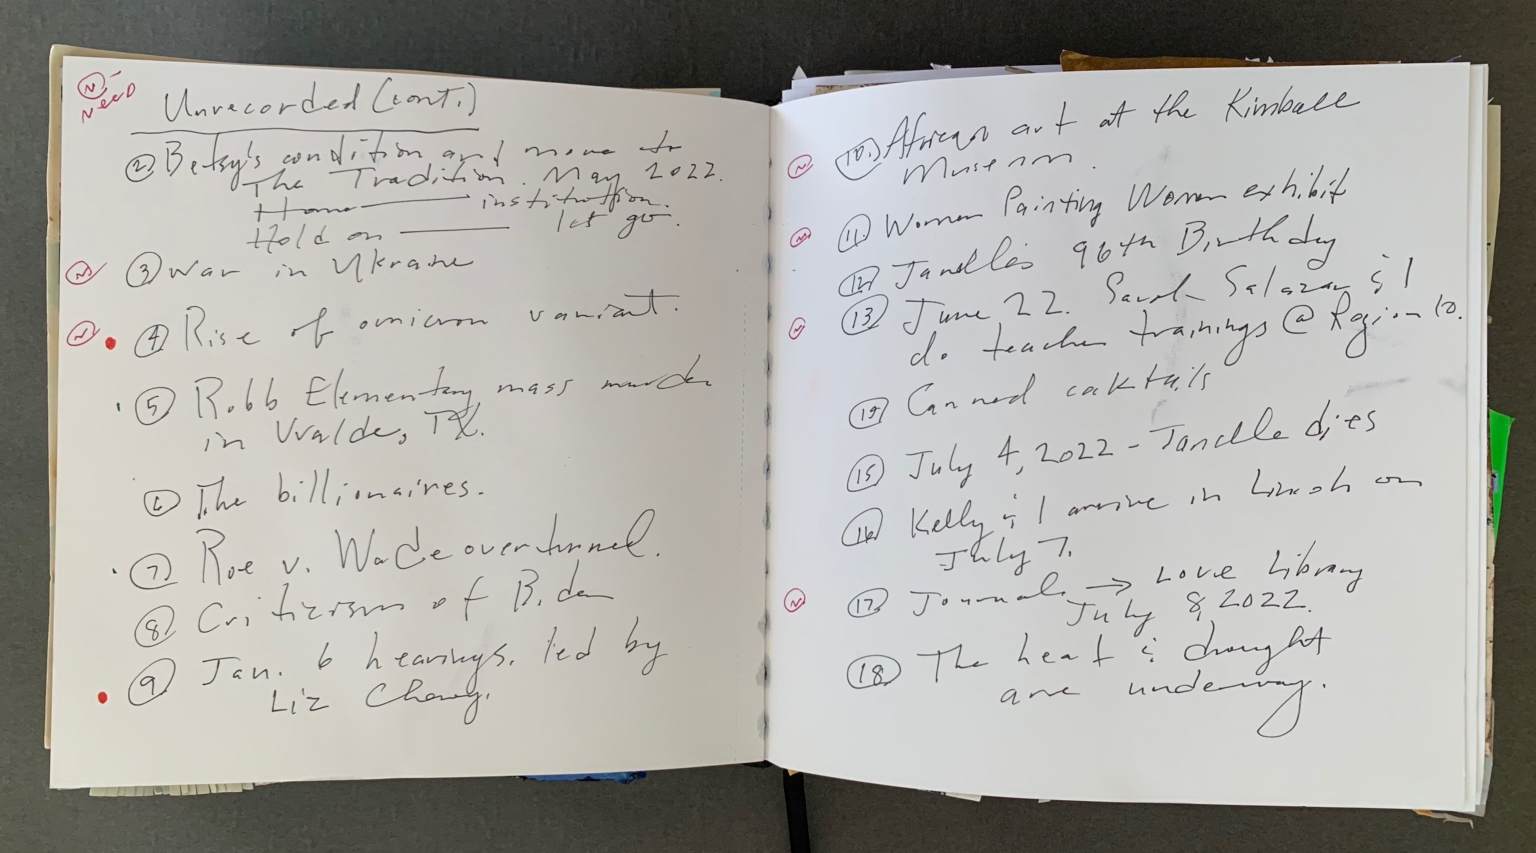 N
NEED
Unrecorded (cont.)
2 Betsy's condition and move to
The Tradition. May 2022.
Home institution.
Hold on let go.
N 3 War in Ukraine
N 4 Rise of omicron variant.
5 Robb Elementary mass murder
in Uvalde, TX.
6 The billionaires.
7 Roe v. Wade overturned.
8 Criticism of Biden
9 Jan. 6 hearings, led by
Liz Cheney.
N 10. African art at the Kimball
Museum.
N 11 Women Painting Women exhibit
12 Janelle's 96th Birthday
N 13 June 22. Sarah Salazar & I
do teacher trainings @ Region 10.
14 Canned cocktails
15 July 4, 2022 - Janelle dies
16 Kelly & I arrive in Lincoln on
July 7.
N 17. Journals → Love Library
July 8, 2022.
18 The heat & drought
are underway.